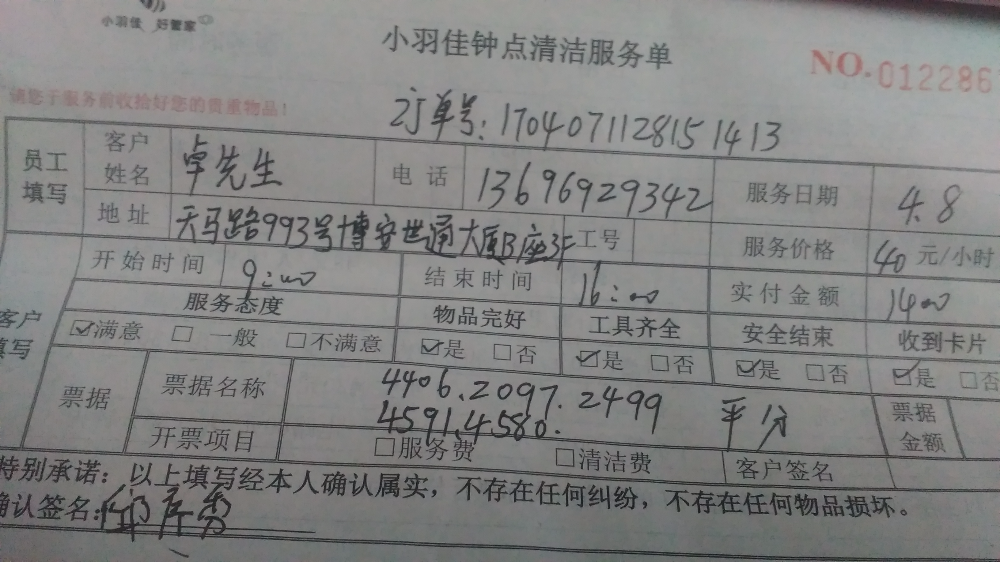 小羽佳 好管家
小羽佳钟点清洁服务单
NO. 012286
请您于服务前收拾好您的贵重物品！
订单号：1704071128151413
员工填写 客户姓名 卓先生 电话 13696929342 服务日期 4.8
地址 天马路993号博安世通大厦B座3F 工号 服务价格 40 元/小时
开始时间 9:00 结束时间 16:00 实付金额 1400
客户填写 服务态度 物品完好 工具齐全 安全结束 收到卡片
☑满意 □一般 □不满意 ☑是 □否 ☑是 □否 ☑是 □否 ☑是 □否
票据 票据名称 4406.2097.2499 平分 票据金额
4591.4580.
开票项目 □服务费 □清洁费 客户签名
特别承诺：以上填写经本人确认属实，不存在任何纠纷，不存在任何物品损坏。
确认签名：